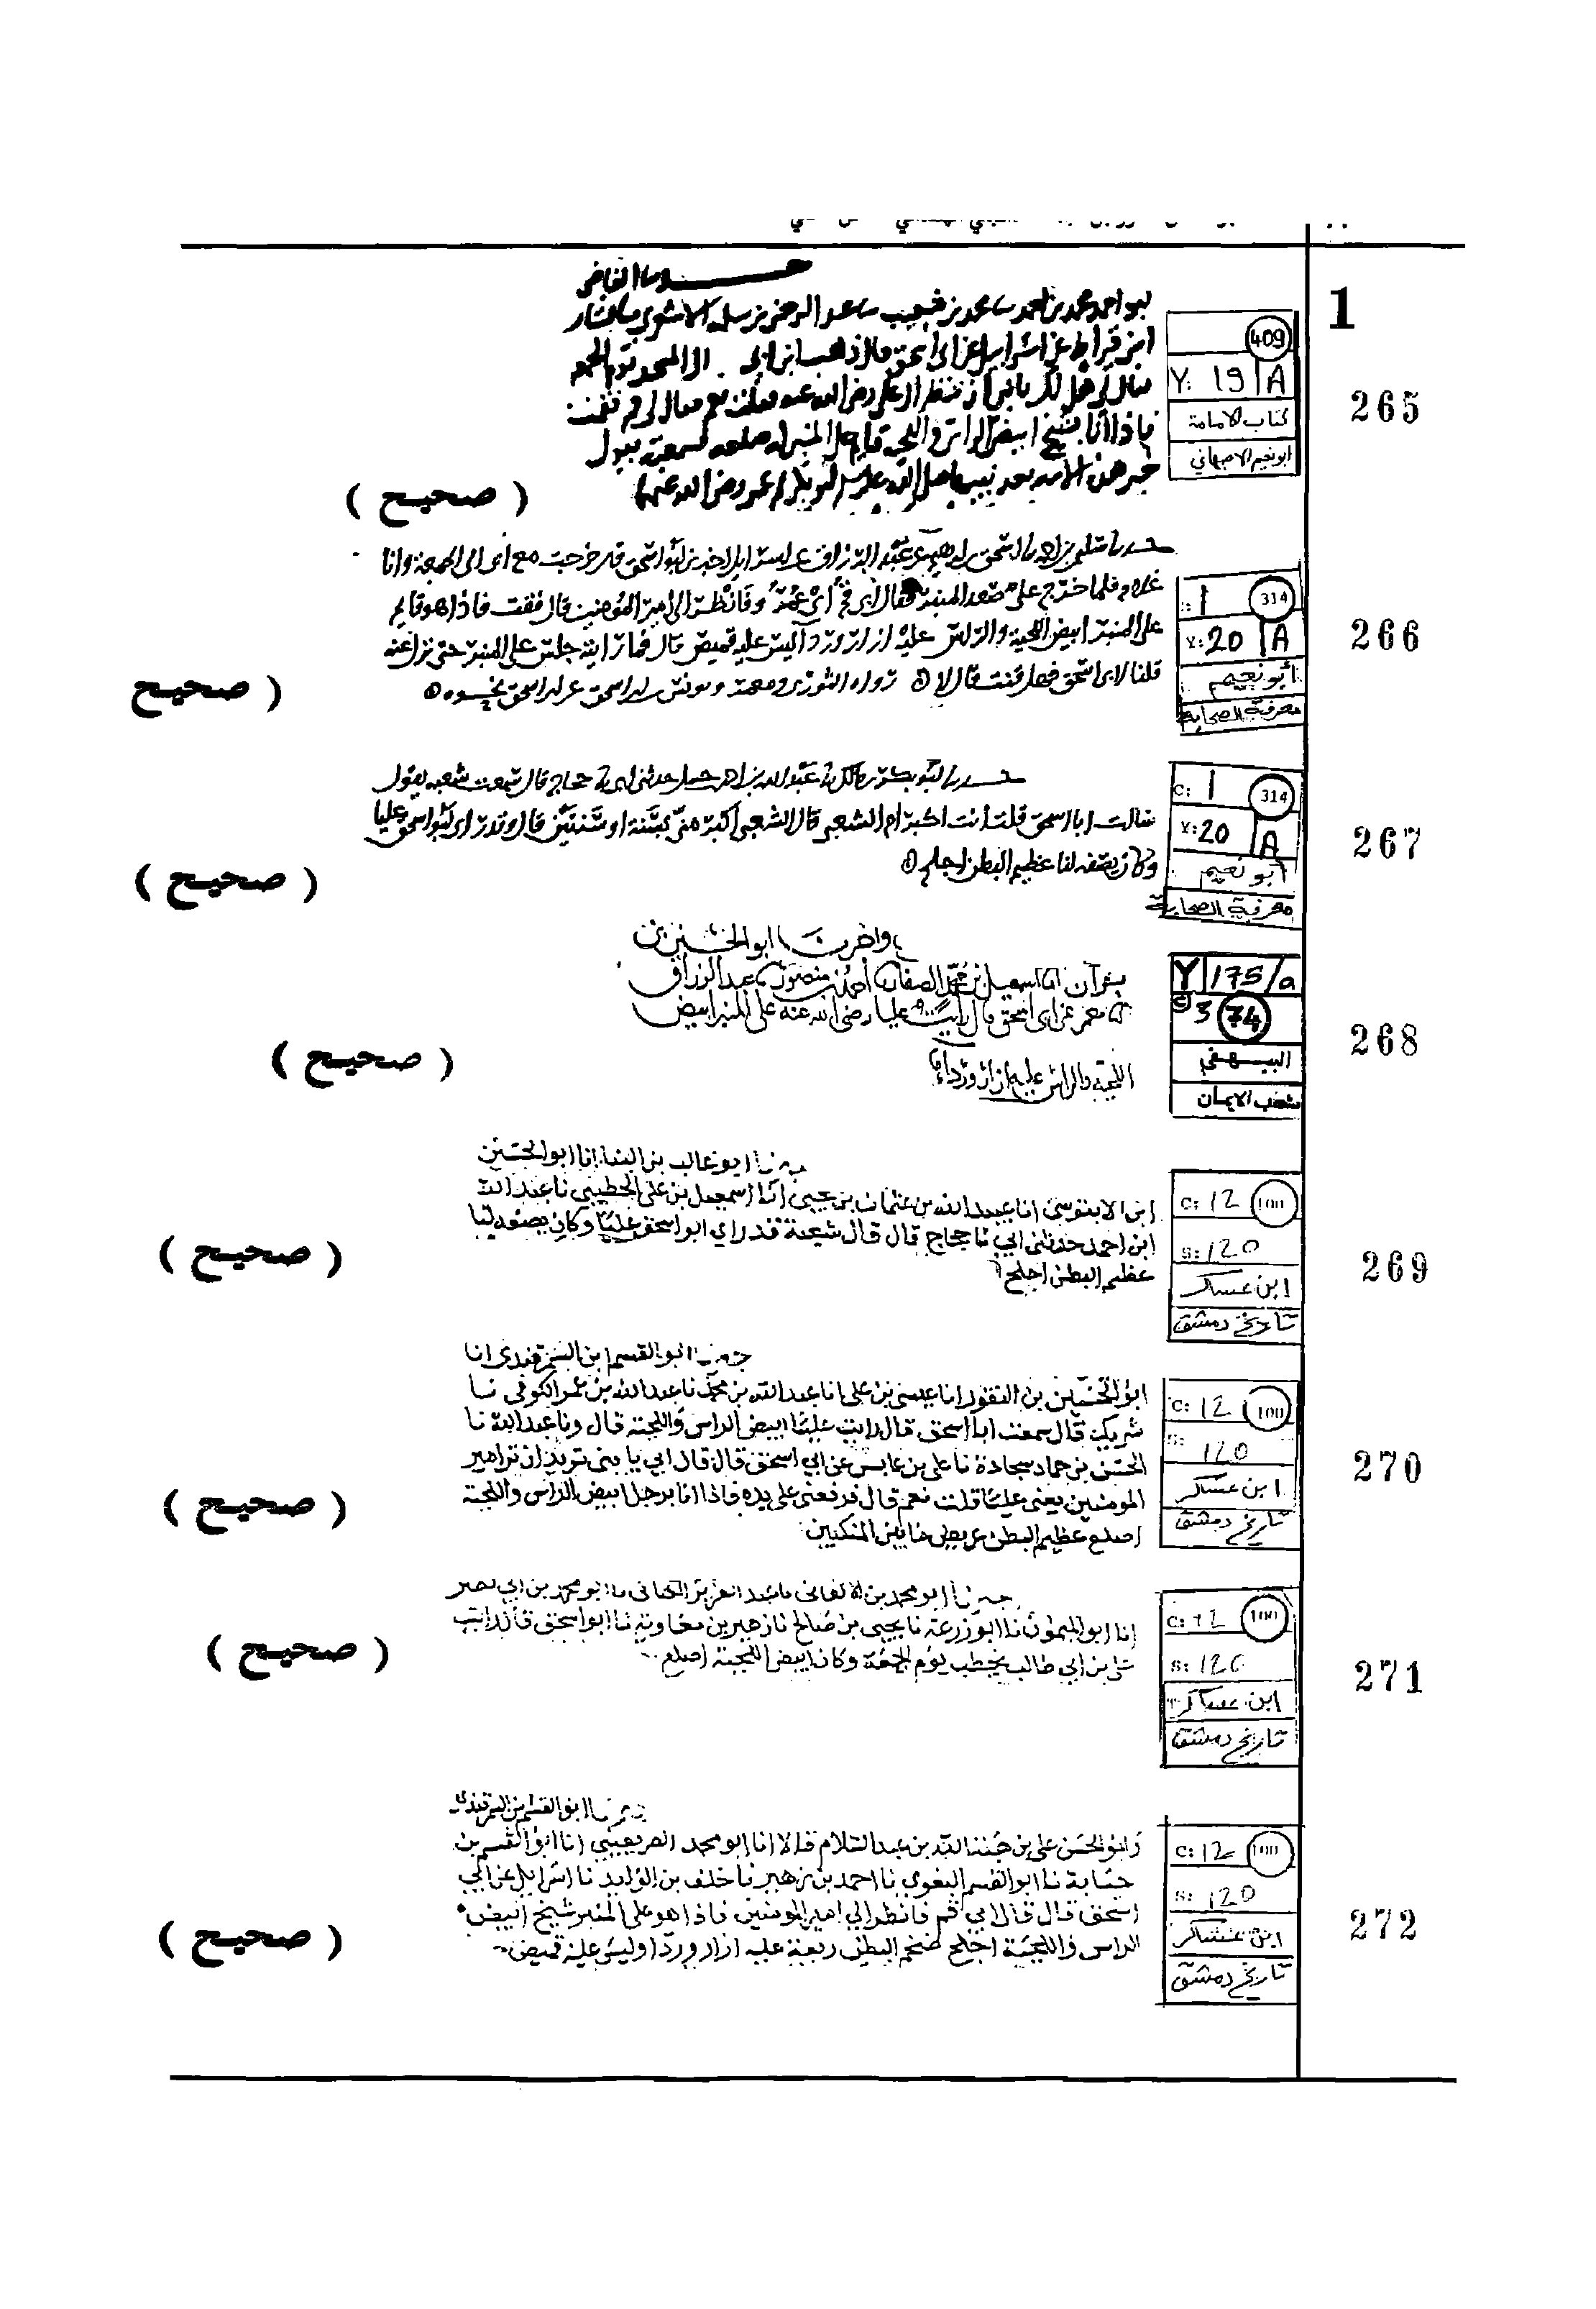 1
حدثنا القاضي
ابو احمد محمد بن احمد ثنا محمد بن شعيب ثنا عبد الرحمن بن سلمة
ابن قيراط عن اسرائيل عن ابي اسحق قال ذهب ابي الى المسجد يوم الجمعة
فقال لي هل لك يا بني ان تنظر الى علي رضي الله عنه فقلت نعم فقال لي قم فقمت
فاذا انا بشيخ ابيض الراس واللحية قايم على المنبر له صلعة فسمعته يقول
خير هذه الامة بعد نبيها صلى الله عليه وسلم ابو بكر ثم عمر رضي الله عنهما
( صحيح )
409
Y: 19 A
كتاب الامامة
ابو نعيم الاصبهاني
265
اسحق بن ابرهيم عن عبد الرزاق عن اسرايل اخبرني ابو اسحق قال خرجت مع ابي الى الجمعة وانا
غلام فلما خرج علي صعد المنبر فقال ابي قم اي عمرو فانظر الى امير المؤمنين قال فقمت فاذا هو قايم
على المنبر ابيض اللحية والراس عليه ازار وردا ليس عليه قميص قال فما رايته جلس على المنبر حتى نزل عنه
قلنا لابي اسحق فهل قنت قال لا رواه الثوري ومعمر ويونس بن ابي اسحق عن ابي اسحق نحوه
( صحيح
: 1 314
Y: 20 A
أبو نعيم
معرفة الصحابة
266
حدثنا ابو بكر بن مالك ثنا عبد الله بن احمد حدثني ابي ثنا حجاج قال سمعت شعبة يقول
سالت ابا اسحق قلت انت اكبر ام الشعبي قال الشعبي اكبر مني بسنة او سنتين قال وقد راى ابو اسحق عليا
وكان يصفه لنا عظيم البطن اجلح
( صحيح )
C: 1 314
Y: 20 A
أبو نعيم
معرفة الصحابة
267
واخبرنا ابو الحسين بن
بشران انا اسمعيل بن محمد الصفار نا احمد بن منصور نا عبد الرزاق
انا معمر عن ابي اسحق قال رايت عليا رضي الله عنه على المنبر ابيض
اللحية والراس عليه ازار ورداء
( صحيح )
Y 175/a
C 3 74
البيهقي
شعب الايمان
268
اخبرنا ابو غالب بن البنا انا ابو الحسين
ابن الابنوسي انا عبيد الله بن عثمان بن يحيى انا اسمعيل بن علي الخطبي نا عبد الله
ابن احمد حدثني ابي نا حجاج قال قال شعبة قد راي ابو اسحق عليا وكان يصفه لنا
عظيم البطن اجلح
( صحيح )
C: 12 100
S: 120
ابن عساكر
تاريخ دمشق
269
اخبرنا ابو القسم ابن السمرقندي انا
ابو الحسين بن النقور انا عيسى بن علي انا عبد الله بن محمد نا عبد الله بن عمر الكوفي نا
شريك قال سمعت ابا اسحق قال رايت عليا ابيض الراس واللحية قال ونا عبد الله نا
الحسن بن حماد سجادة نا علي بن عابس عن ابي اسحق قال قال ابي يا بني تريد ان تر امير
المومنين يعني عليا قلت نعم قال فرفعني على يده فاذا انا برجل ابيض الراس واللحية
اصلع عظيم البطن عريض ما بين المنكبين
( صحيح )
C: 12 100
S: 120
ابن عساكر
تاريخ دمشق
270
اخبرنا ابو محمد بن الاكفاني نا عبد العزيز الكتاني نا ابو محمد بن ابي نصر
انا ابو الميمون نا ابو زرعة نا يحيى بن صالح نا زهير بن معاوية نا ابو اسحق قال رايت
علي بن ابي طالب يخطب يوم الجمعة وكان ابيض اللحية اصلع
( صحيح )
C: 12 100
S: 120
ابن عساكر
تاريخ دمشق
271
اخبرنا ابو القسم بن السمرقندي
وابو الحسن علي بن هبة الله بن عبد السلام قالا انا ابو محمد الصريفيني انا ابو القسم بن
حبابة نا ابو القسم البغوي نا احمد بن زهير نا خلف بن الوليد نا اسرايل عن ابي
اسحق قال قال ابي قم فانظر الي امير المومنين فاذا هو على المنبر شيخ ابيض
الراس واللحية اجلح ضخم البطن ربعة عليه ازار وردا وليس عليه قميص
( صحيح )
C: 12 100
S: 120
ابن عساكر
تاريخ دمشق
272